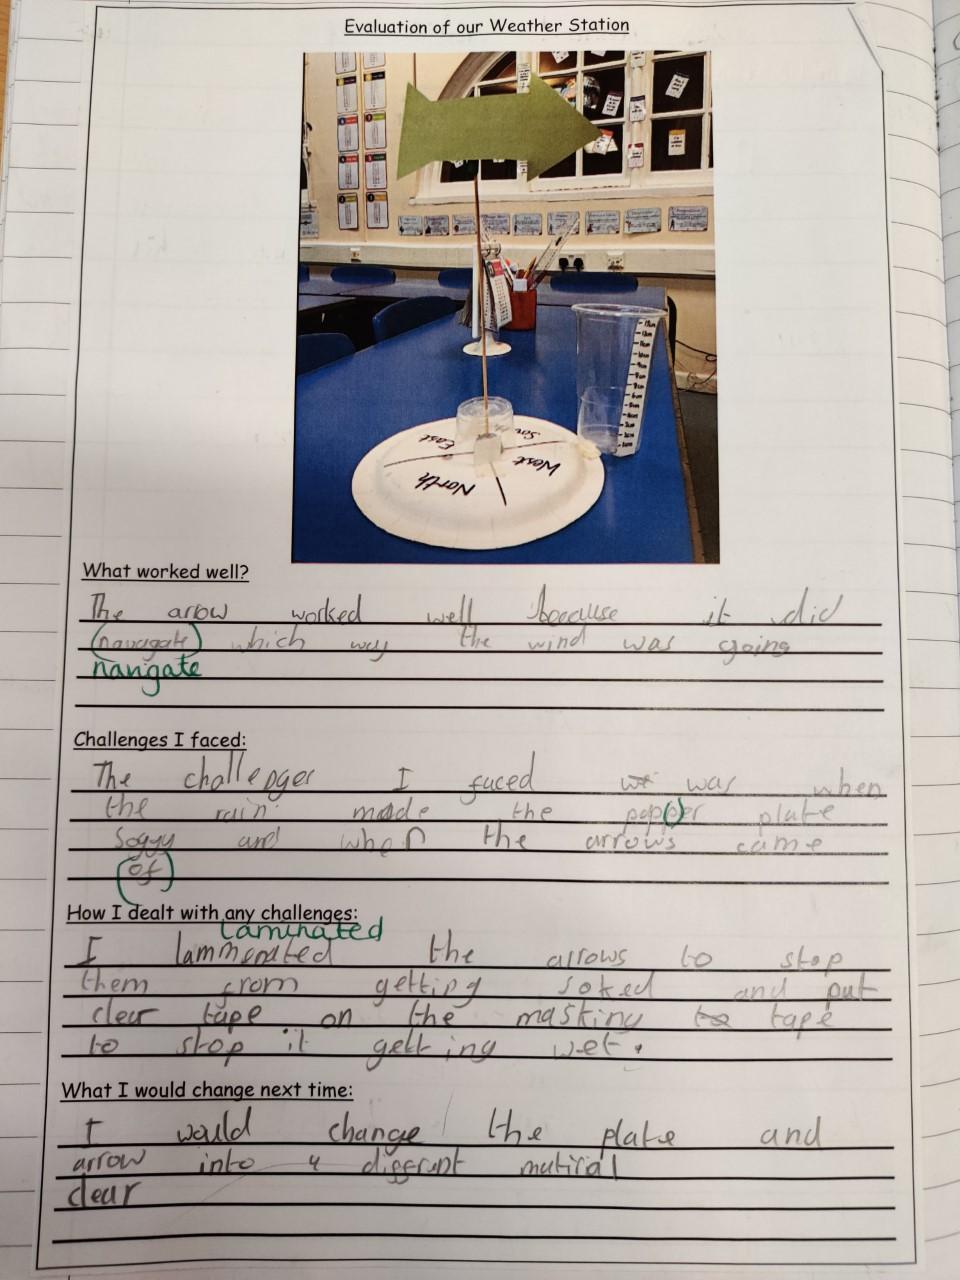 Evaluation of our Weather Station
South
East
West
North
What worked well?
The arow worked well because it did
(navagate) which way the wind was going
navigate
Challenges I faced:
The challenges I faced was when
the rain made the papper plate
soggy and when the arrows came
(of)
How I dealt with any challenges:
laminated
I lammenated the arrows to stop
them from getting soked and put
clear tape on the masking to tape
to stop it getting wet.
What I would change next time:
I would change the plate and
arrow into a diffrent matirial
clear